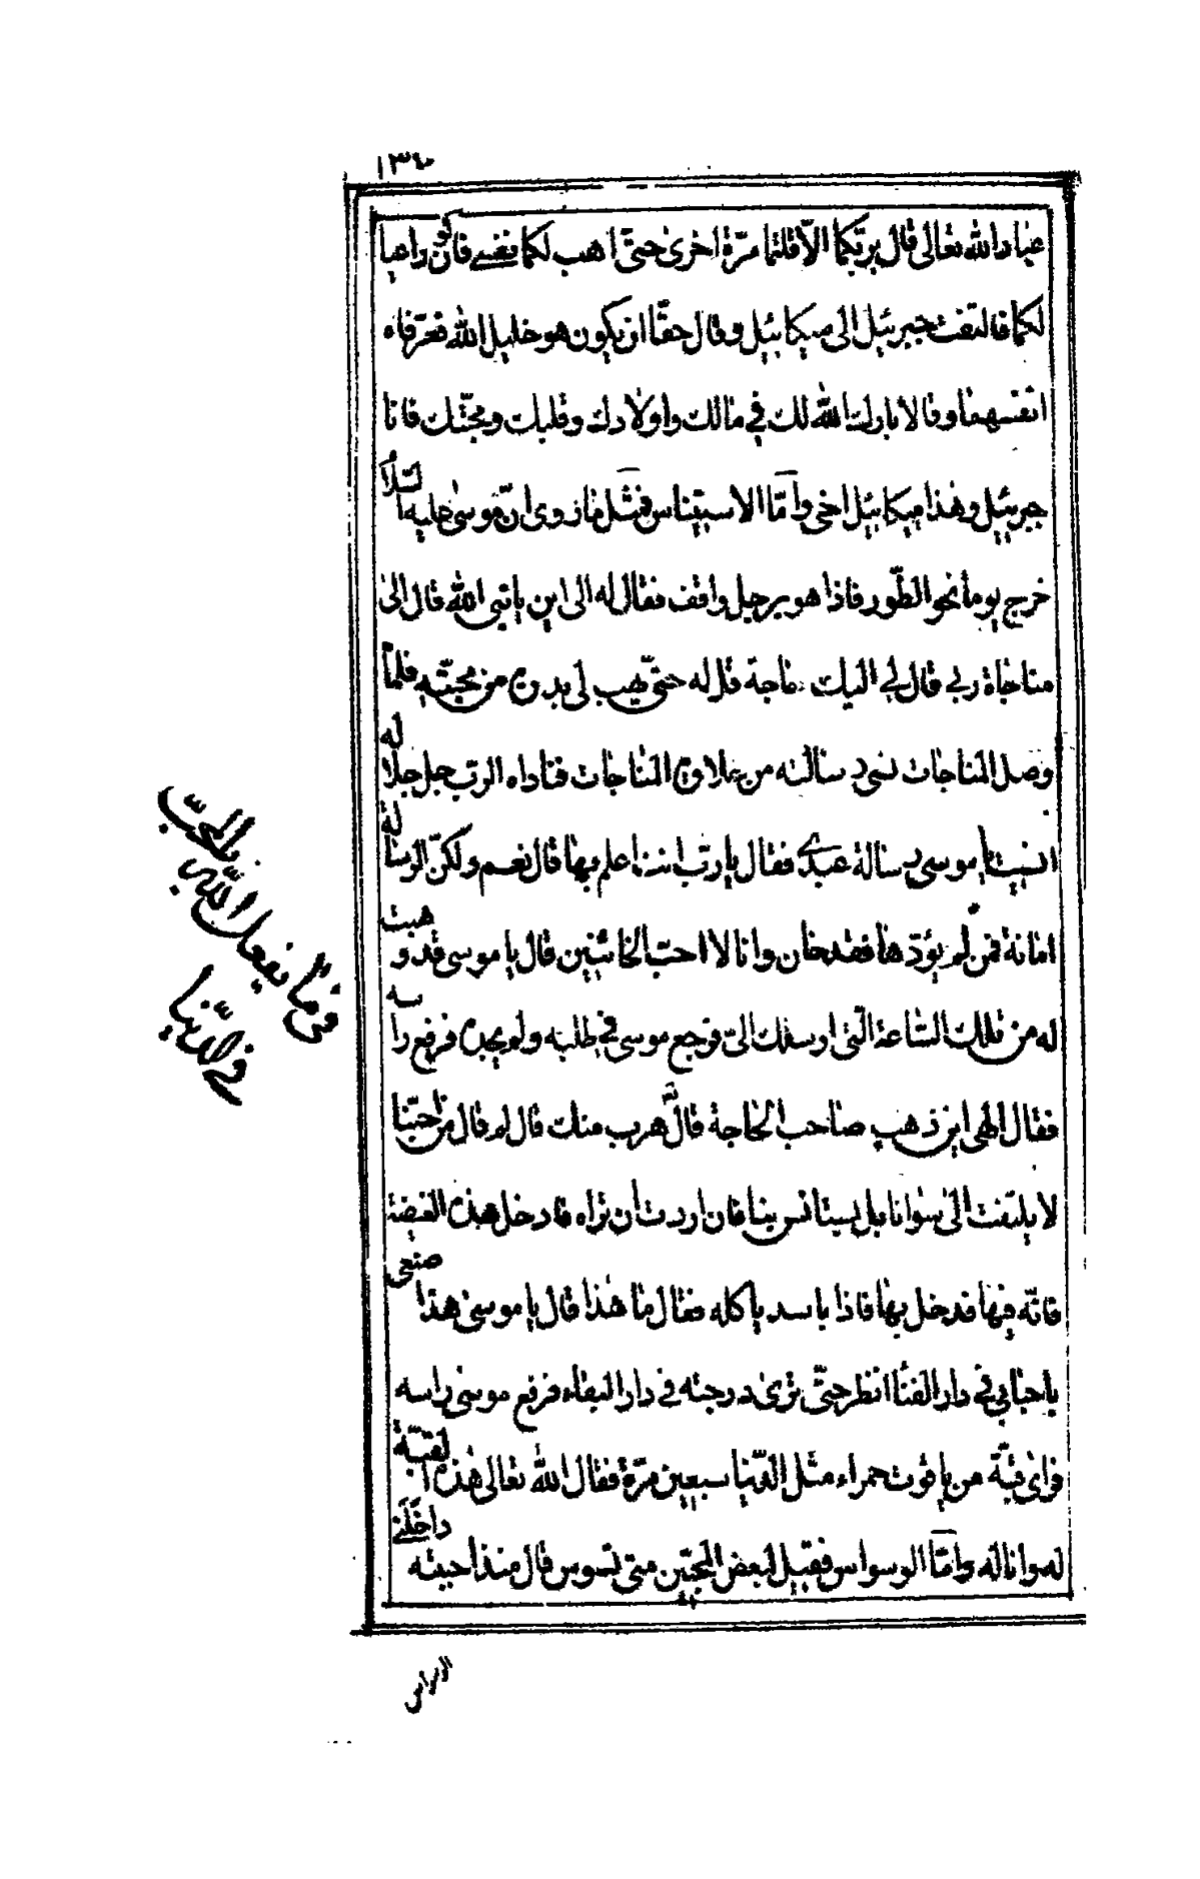 ١٣٤
عباد الله تعالى قال بربّكما الّا قلتما مرّة اخرى حتّى اهب لكما نفسے فاكون راعيا
لكما فالتفت جبرئيل الى ميكائيل وقال حقّا ان يكون هو خليل الله فعرّفاه
انفسهما وقالا بارك الله لك في مالك واولادك وقلبك ومحبّتك فانا
جبرئيل وهذا ميكائيل اخي وامّا الاستيناس فمثل ما روى انّ موسى عليه السّلام
خرج يوما نحو الطّور فاذا هو برجل واقف فقال له الى اين يا نبي الله قال الى
مناجاة ربي قال لي اليك حاجة قل له حتّى يهب لي من محبّته فلمّا
وصل المناجات نسي رسالته من حلاوة المناجات فناداه الرب جل جلاله
انسيت يا موسى رسالة عبدي فقال يا رب انت اعلم بها قال نعم ولكن الرسالة
امانة فمن لم يؤدّها فقد خان وانا لا احبّ الخائنين قال يا موسى قد وهبت
له من تلك السّاعة الّتى ارسلك الىّ فرجع موسى في طلبه ولم يجده فرفع راسه
فقال الهى اين ذهب صاحب الحاجة قال هرب منك قال لم قال من احبّنا
لا يلتفت الى سوانا بل يستانس بنا فان اردت ان تراه فادخل هذه الغيضة
فانّه فيها فدخل بها فاذا باسد ياكله فقال ما هذا قال يا موسى هذا صنعى
باحبابي في دار الفنا انظر حتّى ترى درجته في دار البقاء فرفع موسى راسه
فراى قبّة من ياقوت حمراء مثل الدّنيا سبعين مرّة فقال الله تعالى هذه القبّة
له وانا له وامّا الوسواس فقيل لبعض المحبّين متى توسوس قال منذ احببته داخلنے
فى ما يفعل الله بالمحبّ
في الدّنيا
الوسواس